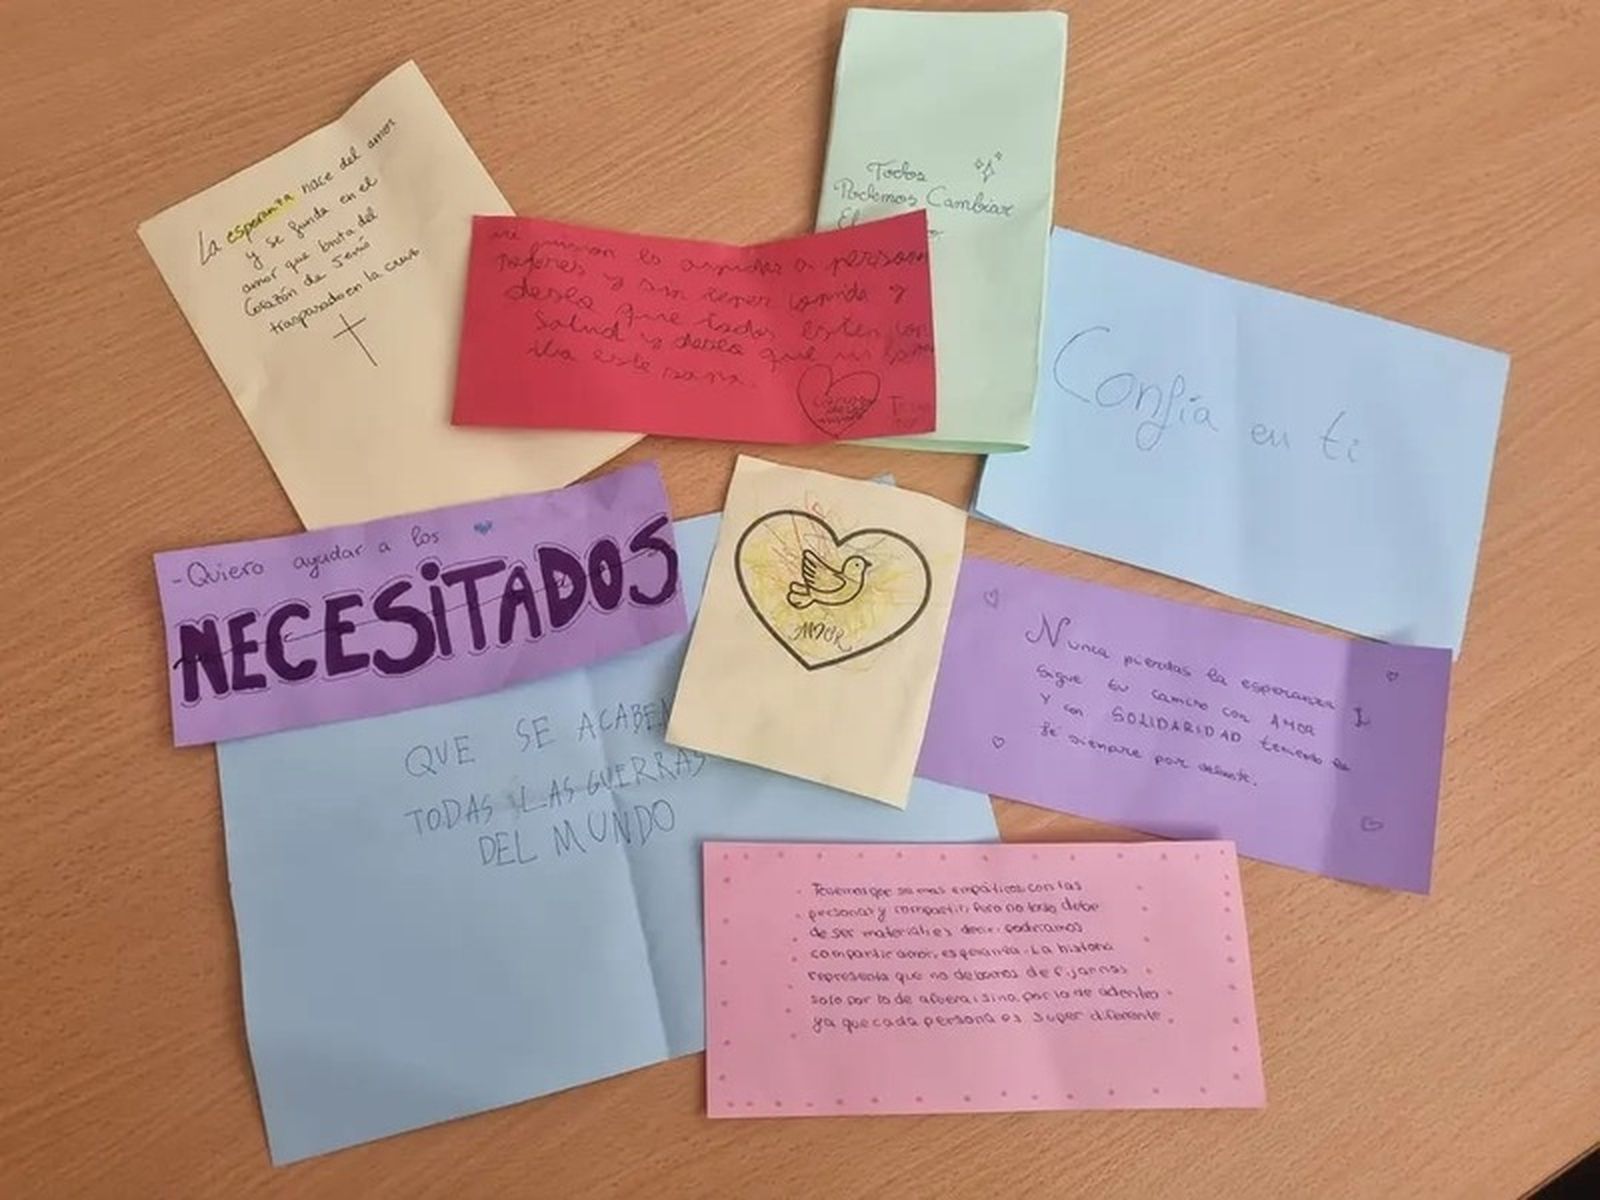 La esperanza nace del amor
y se funda en el
amor que brota del
Corazón de Jesús
traspasado en la cruz
Todos
Podemos Cambiar
El
es ayudar a person
y sin tener comida y
deseo que todos esten con
Salud y deseo que mi fami
lia este sana.
Confía en ti
-Quiero ayudar a los
NECESiTADOS
AMOR
Nunca pierdas la esperanza
sigue tu camino con AMOR
Y con SOLIDARIDAD teniendo la
fe siempre por delante.
QUE SE ACABEN
TODAS LAS GUERRAS
DEL MUNDO
Tenemos que se mas empáticos con las
personas y compartir, Pero no todo debe
de ser material, es decir, podriamos
compartir amor, esperanza. La historia
representa que no debamos de fijarnos
solo por lo de afuera, sino por lo de adentro
ya que cada persona es super diferente.